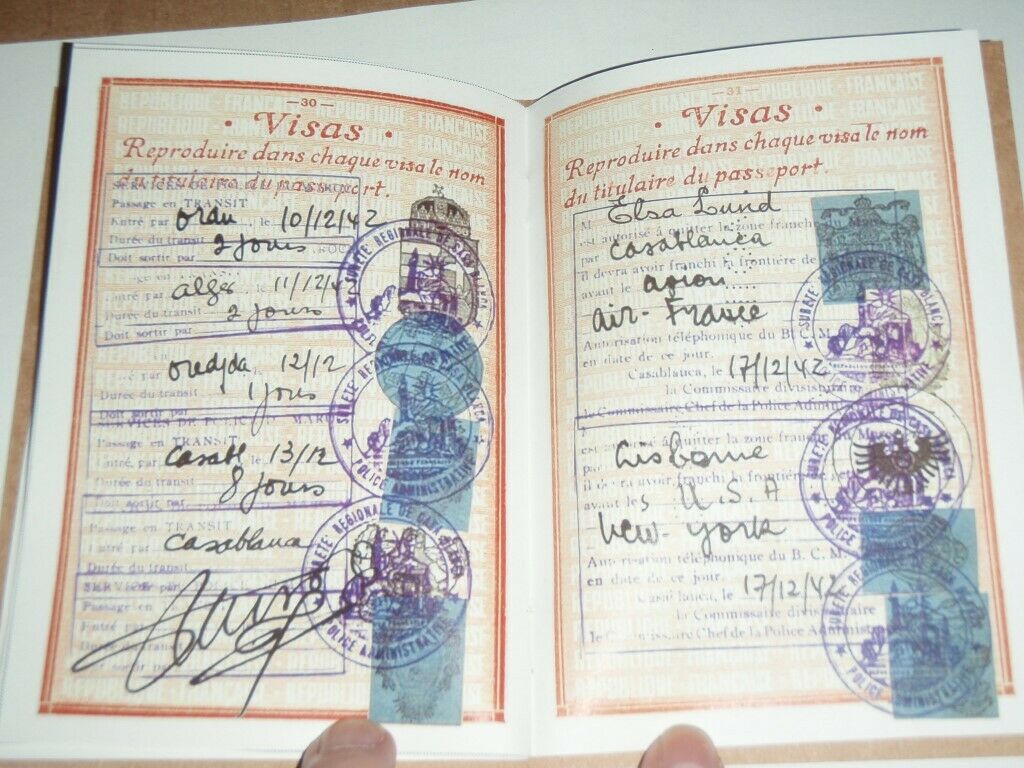 —30—
• Visas •
Reproduire dans chaque visa le nom
du titulaire du passeport.
SERVICES DE POLICE
Passage en TRANSIT
Entré par oran le 10/12/42
Durée du transit 2 jours
Doit sortir par
alger 11/12/42
Durée du transit 2 jours
Doit sortir par
oudjda 12/12
Durée du transit 1 jours
Doit sortir par
SERVICES DE POLICE MAR
Passage en TRANSIT
Entré par Casabl le 13/12
Durée du transit 8 jours
Doit sortir par
Passage en TRANSIT
Entré par Casablanca
Durée du transit
Passage en
Entré par
Durée du transit
SURETE REGIONALE DE CASABLANCA
POLICE ADMINISTRATIVE
SURETE REGIONALE DE CASABLANCA
POLICE ADMINISTRATIVE
SURETE REGIONALE DE CASABLANCA
POLICE ADMINISTRATIVE
—31—
• Visas •
Reproduire dans chaque visa le nom
du titulaire du passeport.
M Elsa Lund
est autorisé à quitter la zone franch
par Casablanca
il devra avoir franchi la frontière de
avant le avion
air-France
Autorisation téléphonique du B. C. M.
en date de ce jour.
Casablanca, le 17/12/42
la Commissaire divisionnaire
le Commissaire Chef de la Police Administ
est autorisé à quitter la zone franch
Lisbonne
il devra avoir franchi la frontière
avant le U.S.A
New-York
Autorisation téléphonique du B. C. M.
en date de ce jour.
Casablanca, le 17/12/42
la Commissaire divisionnaire
le Commissaire Chef de la Police Administ
SURETE REGIONALE DE CASABLANCA
POLICE ADMINISTRATIVE
SURETE REGIONALE DE CASABLANCA
POLICE ADMINISTRATIVE
SURETE REGIONALE DE CASABLANCA
POLICE ADMINISTRATIVE